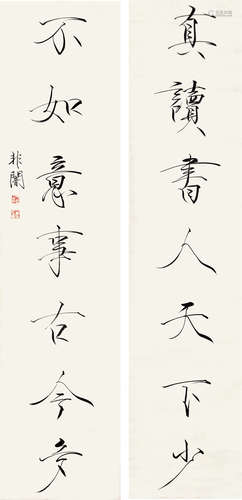 真讀書人天下少
不如意事古今多
非闇